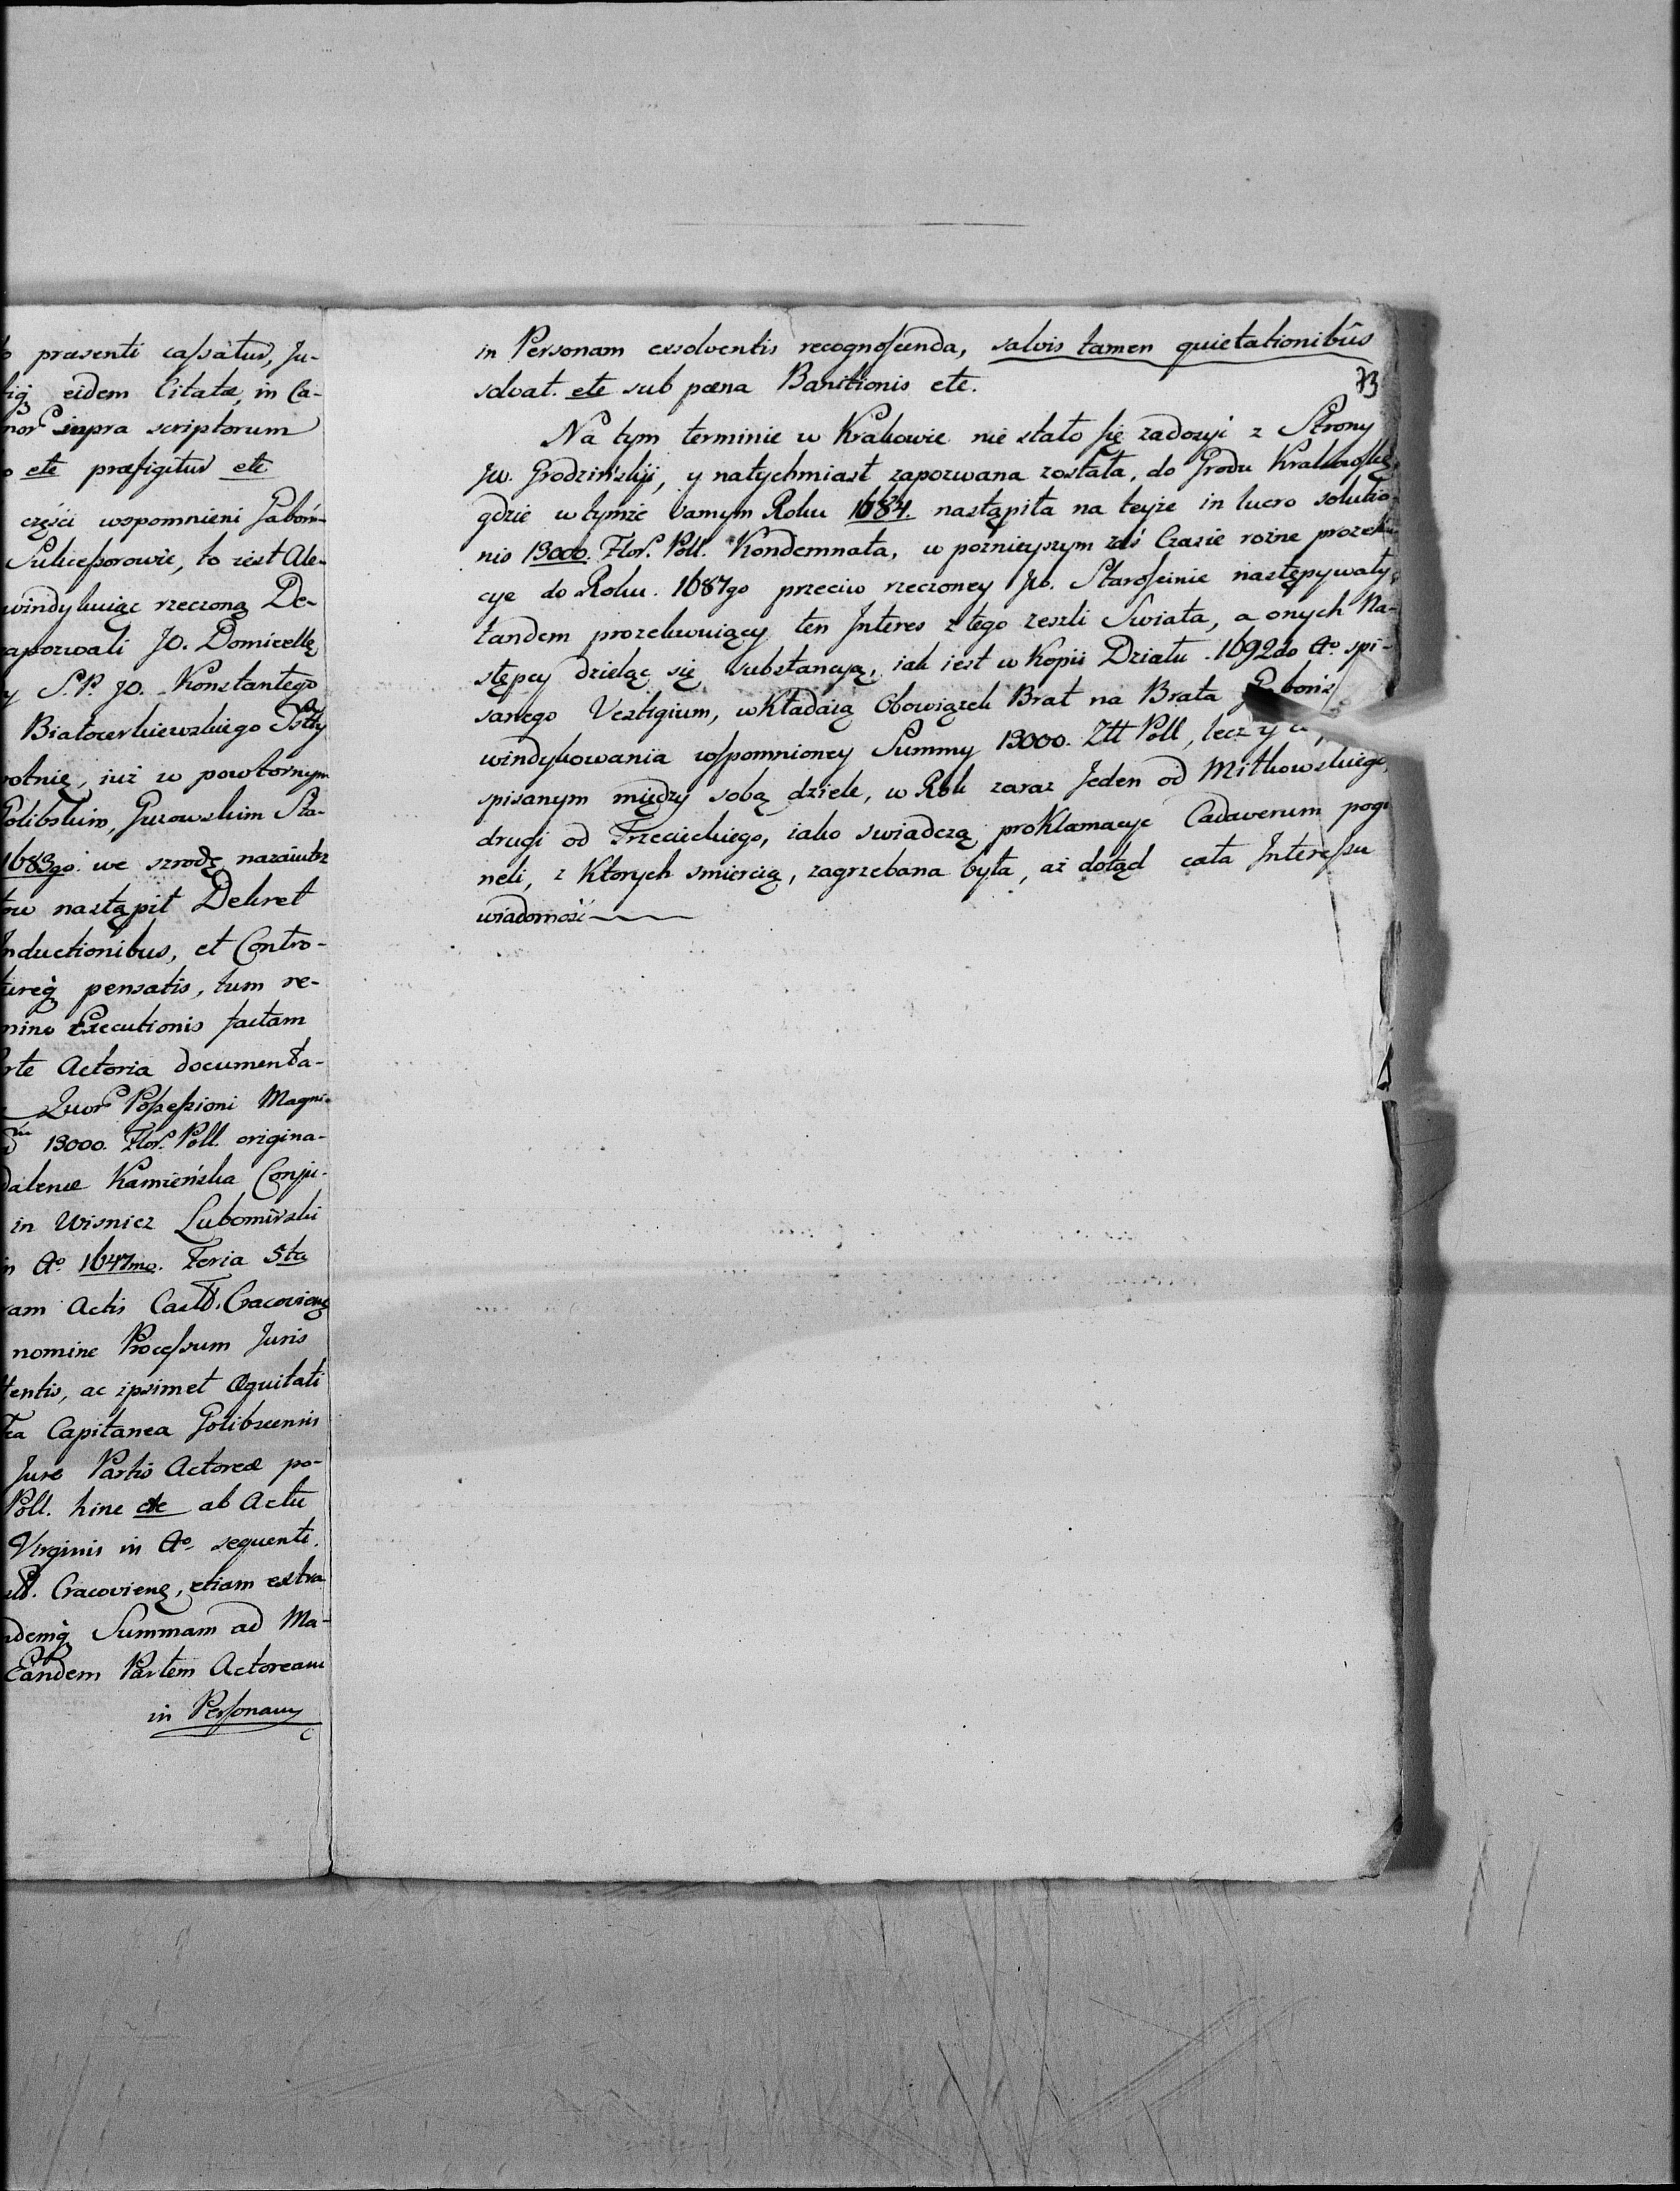 præsenti cassatur, Ju-
eidem Citatæ, in Ca-
supra scriptorum
ete præfigitur ete
części wspomnieni Gaboń-
Sukcessorowie, to iest Ale-
windykuiąc rzeczoną De-
JO. Domicellę
y S.P. JO. Konstantego
Białocerkiewskiego
iuż w powtornym
Gurowskim Sta-
1683go. we srzodę nazaiutrz
nastąpił Dekret
Inductionibus, et Contro-
pensatis, tum re-
Executionis factam
Actoria documenta-
Quor Possessioni Magni-
13000. Flor. Poll. origina-
Kamieńska Conju-
in Wisnicz Lubomirski
Ao. 1647mo. Feria 5ta
Actis Castr. Cracovieng
nomine Processum Juris
ac ipsimet Æquitati
Capitanea Golibscensis
Jure Partis Actoreæ po-
Poll. hinc etc ab Actu
Virginis in Ao. sequenti.
Cracovieng, etiam extra
Summam ad Ma-
Eandem Partem Actoream
in Personam
73
in Personam exsolventis recognoscenda, salvis tamen quietationibûs
solvat. ete sub pœna Banitionis ete.
Na tym terminie w Krakowie nie stało się zadosyć z Strony
JW. Grodzińskiy, y natychmiast zapozwana została, do Grodu
gdzie w tymże samym Roku 1684. nastąpiła na teyże in lucro solutio-
nis 13000. Flor. Poll. Kondemnata, w poznieyszym zaś Czasie rożne prozeku-
cye do Roku. 1687go przeciw rzeczoney JW. Starościnie następywały,
tandem prozekwuiący ten Interes z tego zeszli Swiata, a onych Na-
stępcy dzieląc się substancyą, iak iest w Kopii Działu 1692do Ao. spi-
sanego Vestigium, wkładaią Obowiązek Brat na Brata
windykowania wspomnioney Summy 13000. Złł Poll, lecz y
spisanym między sobą dziele, w Rok zaraz Jeden od Miłkowskiego,
drugi od Trzecieckiego, iako swiadczą proklamacye Cadaverum pogi
neli, z Ktorych smiercią, zagrzebana była, aż dotąd cała Interessu
wiadomość